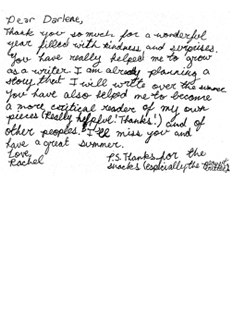 Dear Darlene,
Thank you so much for a wonderful
year filled with kindness and surprises.
You have really helped me to grow
as a writer I am already planning a
story that I will write over the summer.
You have also helped me to become
a more critical reader of my own
pieces (Really helpful! Thanks!) and of
other peoples. I'll miss you and
have a great summer.
Love,
Rachel
P.S. Thanks for the
snacks (especially the